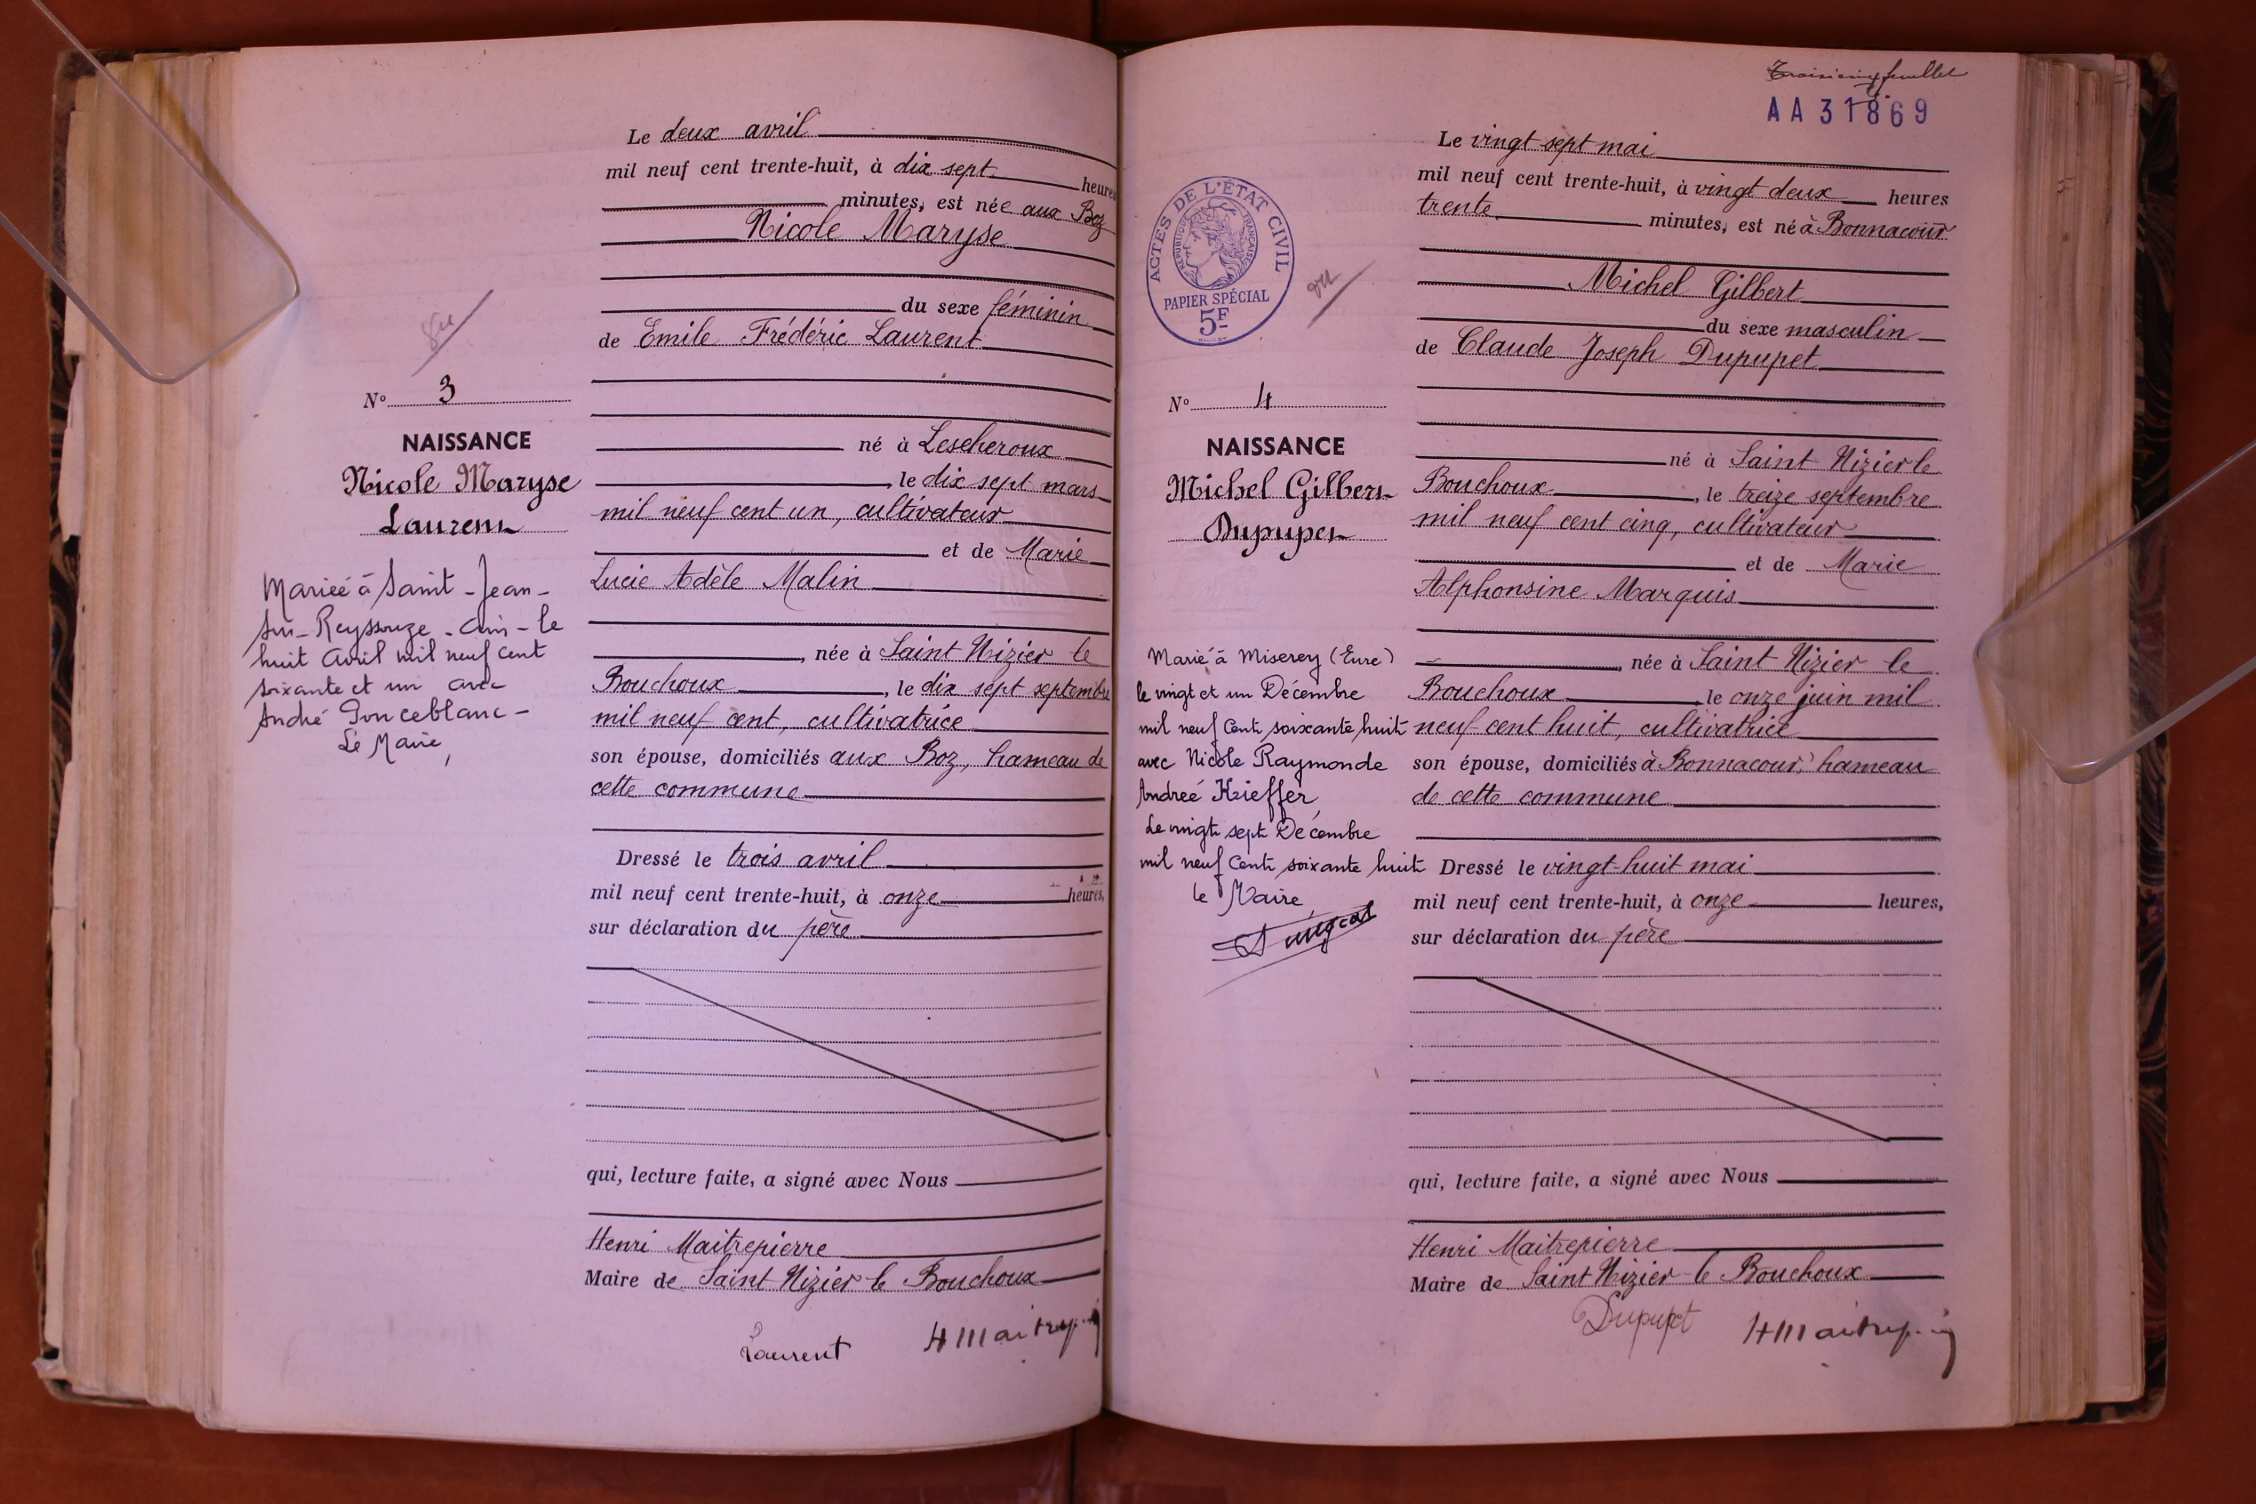 Le deux avril
mil neuf cent trente-huit, à dix sept heures
minutes, est née aux Boz
Nicole Maryse
du sexe féminin
de Emile Frédéric Laurent
né à Lescheroux
, le dix sept mars
mil neuf cent un, cultivateur
et de Marie
Lucie Adèle Malin
, née à Saint Nizier le
Bouchoux, le dix sept septembre
mil neuf cent, cultivatrice
son épouse, domiciliés aux Boz, hameau de
cette commune
Dressé le trois avril
mil neuf cent trente-huit, à onze heures,
sur déclaration du père
qui, lecture faite, a signé avec Nous
Henri Maitrepierre
Maire de Saint Nizier le Bouchoux
Laurent
vu
No 3
NAISSANCE
Nicole Maryse
Laurent
Mariée à Saint-Jean-
sur-Reyssouze-Ain-le
huit Avril mil neuf cent
soixante et un avec
André Ponceblanc-
Le Maire,
Troisième feuillet
AA 31869
Le vingt sept mai
mil neuf cent trente-huit, à vingt deux heures
trente minutes, est né à Bonnacour
Michel Gilbert
du sexe masculin
de Claude Joseph Dupupet
né à Saint Nizier le
Bouchoux, le treize septembre
mil neuf cent cinq, cultivateur
et de Marie
Alphonsine Marquis
, née à Saint Nizier le
Bouchoux, le onze juin mil
neuf cent huit, cultivatrice
son épouse, domiciliés à Bonnacour, hameau
de cette commune
Dressé le vingt-huit mai
mil neuf cent trente-huit, à onze heures,
sur déclaration du père
qui, lecture faite, a signé avec Nous
Henri Maitrepierre
Maire de Saint Nizier le Bouchoux
Dupupet
ACTES DE L'ÉTAT CIVIL
RÉPUBLIQUE FRANÇAISE
PAPIER SPÉCIAL
5F
vu
No 4
NAISSANCE
Michel Gilbert
Dupupet
Marié à Miserey (Eure)
le vingt et un Décembre
mil neuf cent soixante huit
avec Nicole Raymonde
Andrée Kieffer
Le vingt sept Décembre
mil neuf cent soixante huit
le Maire,